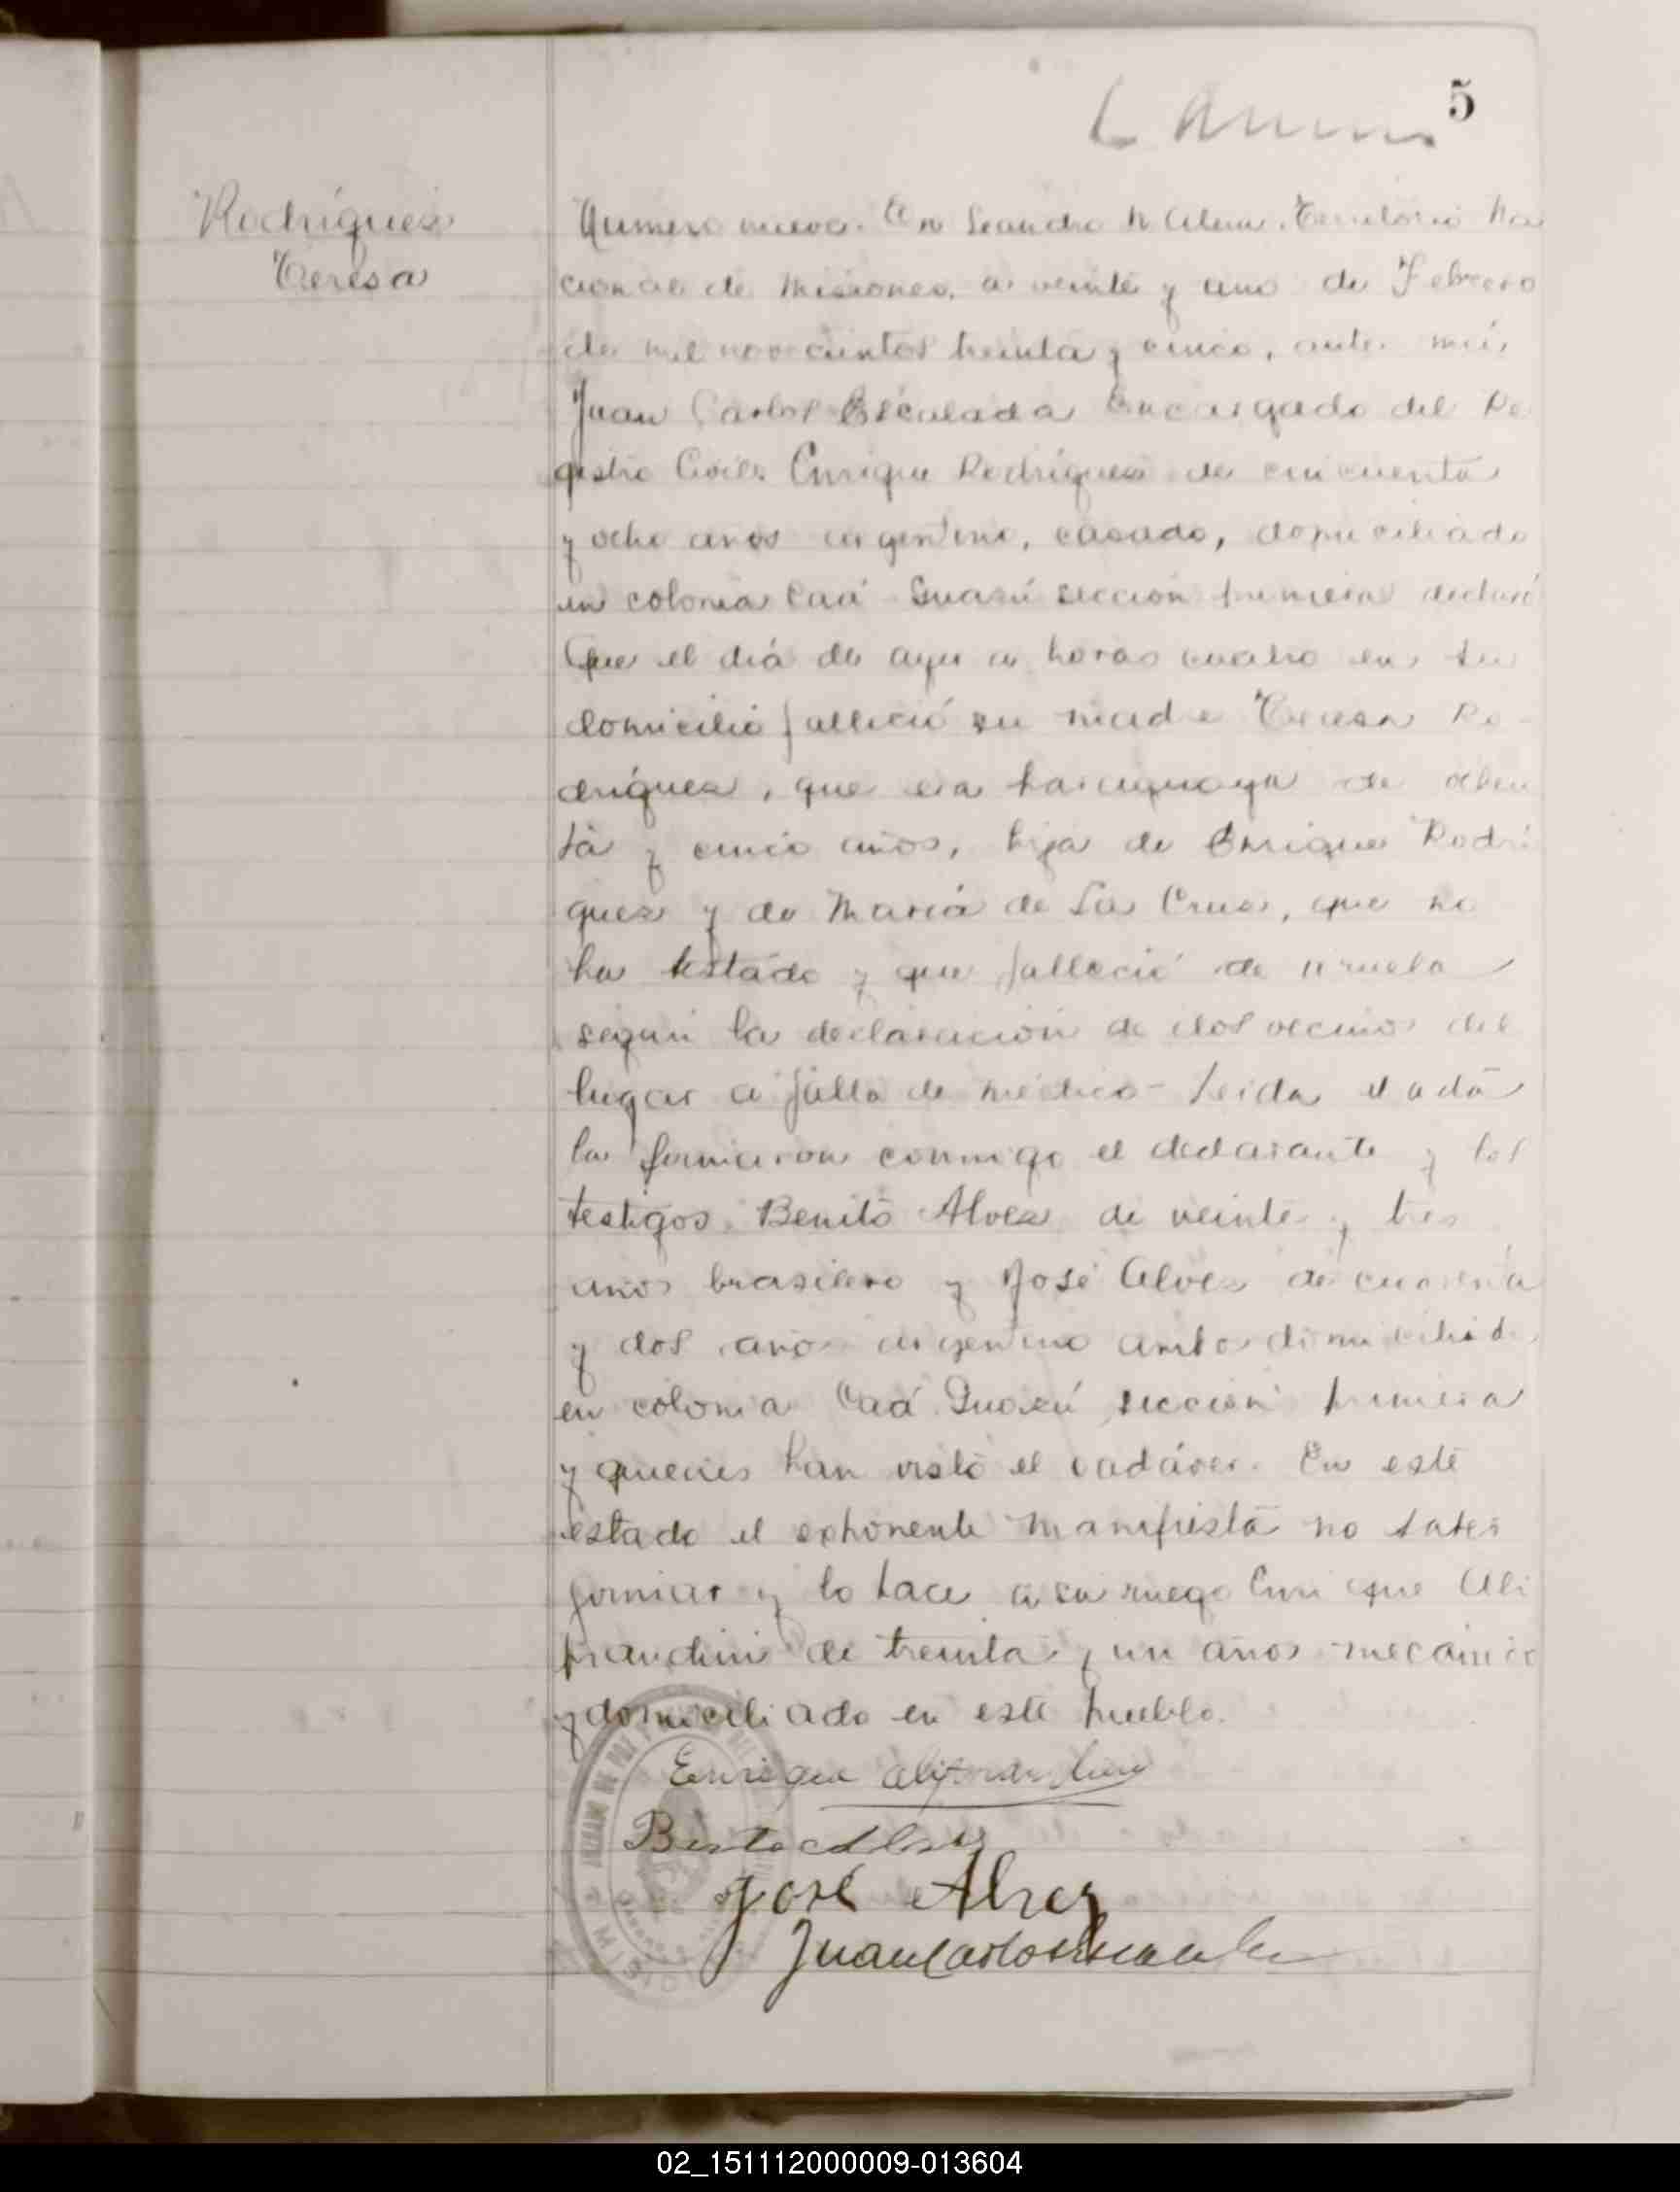 5
Rodríguez
Teresa
Numero nueve. En Leandro N Alem, Territorio Na
cional de Misiones, a veinte y uno de Febrero
de mil novecientos treinta y cinco, ante mí,
Juan Carlos Escalada Encargado del Re
gistro Civil, Enrique Rodríguez de cincuenta
y ocho años argentino, casado, domiciliado
en colonia Caá Guazú sección primera declaró
Que el día de ayer a horas cuatro en su
domicilio falleció su madre Teresa Ro-
dríguez, que era paraguaya de ochen
ta y cinco años, hija de Enrique Rodrí
guez y de María de La Cruz, que no
ha testado y que falleció de
según la declaración de dos vecinos del
lugar a falta de médico- Leída el acta
la firmaron conmigo el declarante y los
testigos Benito Alvez de veinte y tres
años brasilero y José Alvez de cuarenta
y dos años argentino ambos domiciliados
en colonia Caá Guazú sección primera
y quienes han visto el cadáver. En este
estado el exponente manifiesta no saber
firmar y lo hace a su ruego Enrique Ali
prandini de treinta y un años mecánico
y domiciliado en este pueblo.
Enrique Aliprandini
Benito Alvez
José Alvez
Juan Carlos Escalada
02_151112000009-013604